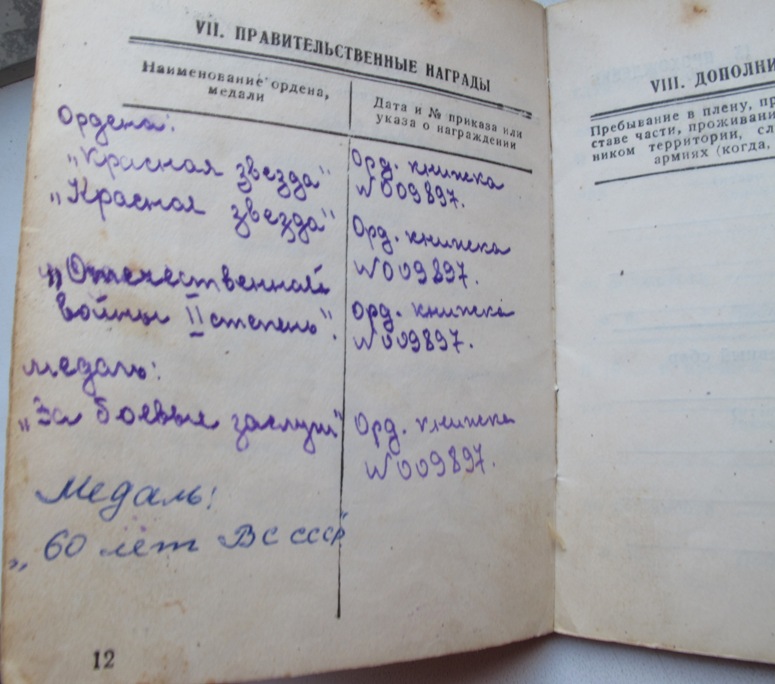 VII. ПРАВИТЕЛЬСТВЕННЫЕ НАГРАДЫ
Наименование ордена,
медали
Дата и № приказа или
указа о награждении
Ордена:
„Красная звезда"
Орд. книжка
№009897.
„Красная звезда"
Орд. книжка
№009897.
„Отечественной
войны II степень".
Орд. книжка
№009897.
медаль:
„За боевые заслуги"
Орд. книжка
№009897.
Медаль:
„60 лет ВС СССР"
12
VIII. ДОПОЛНИ
Пребывание в плену, пр
ставе части, проживани
ником территории, сл
армиях (когда,